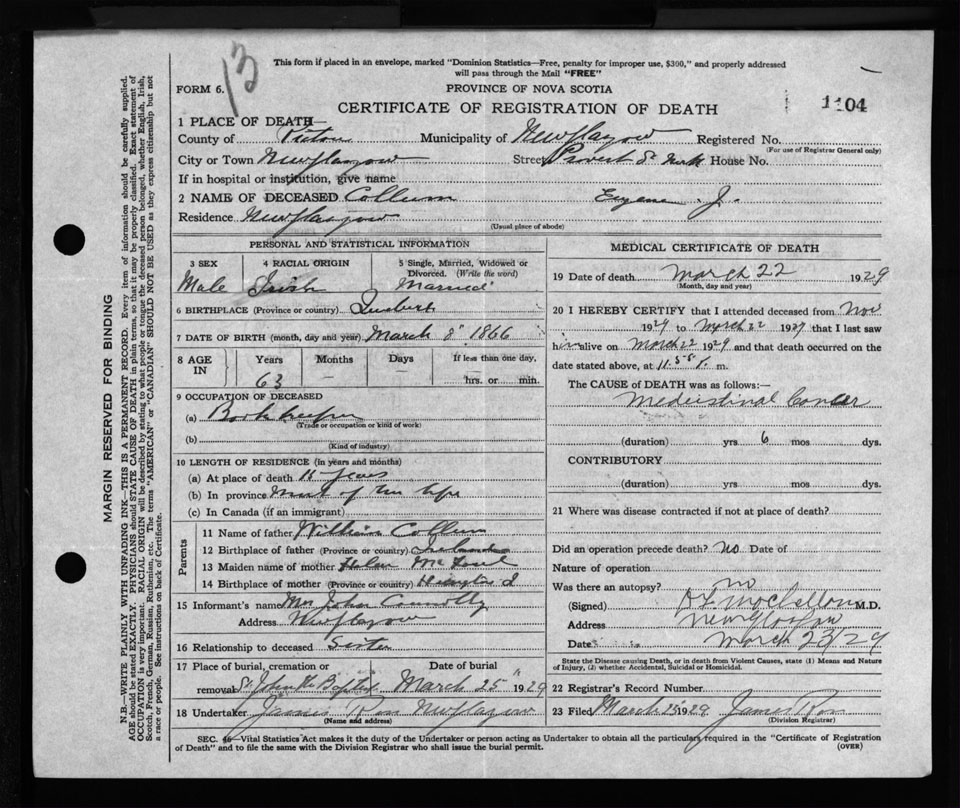 13
This form if placed in an envelope, marked "Dominion Statistics—Free, penalty for improper use, $300," and properly addressed
will pass through the Mail "FREE"
FORM 6.
PROVINCE OF NOVA SCOTIA
CERTIFICATE OF REGISTRATION OF DEATH
1104
1 PLACE OF DEATH—
County of Pictou Municipality of New Glasgow Registered No.
(For use of Registrar General only)
City or Town New Glasgow Street Provost St House No.
If in hospital or institution, give name
2 NAME OF DECEASED Collum Eugene J.
Residence New Glasgow
(Usual place of abode)
PERSONAL AND STATISTICAL INFORMATION
3 SEX 4 RACIAL ORIGIN 5 Single, Married, Widowed or Divorced. (Write the word)
Male Irish Married
6 BIRTHPLACE (Province or country)
7 DATE OF BIRTH (month, day and year) March 8" 1866
8 AGE IN Years Months Days If less than one day,
63 — — hrs. or min.
9 OCCUPATION OF DECEASED
(a) Book keeper
(Trade or occupation or kind of work)
(b)
(Kind of industry)
10 LENGTH OF RESIDENCE (in years and months)
(a) At place of death 11 years
(b) In province most of his life
(c) In Canada (if an immigrant)
Parents
11 Name of father William Collum
12 Birthplace of father (Province or country) Ireland
13 Maiden name of mother Helen
14 Birthplace of mother (Province or country)
15 Informant's name Mrs John Connolly
Address New Glasgow
16 Relationship to deceased Sister
17 Place of burial, cremation or removal St John the Baptist Date of burial March 25" 1929
18 Undertaker James Ross New Glasgow
(Name and address)
MEDICAL CERTIFICATE OF DEATH
19 Date of death March 22 1929
(Month, day and year)
20 I HEREBY CERTIFY that I attended deceased from Nov
192 to March 22 1929 that I last saw
him alive on March 22 1929 and that death occurred on the
date stated above, at 11.55 P. m.
The CAUSE of DEATH was as follows:—
Mediastinal Cancer
(duration) yrs 6 mos dys.
CONTRIBUTORY
(duration) yrs mos dys.
21 Where was disease contracted if not at place of death?
Did an operation precede death? no Date of
Nature of operation
Was there an autopsy? no
(Signed) M.D.
Address New Glasgow
Date March 23/29
State the Disease causing Death, or in death from Violent Causes, state (1) Means and Nature
of Injury, (2) whether Accidental, Suicidal or Homicidal.
22 Registrar's Record Number
23 Filed March 25 1929 James Ross
(Division Registrar)
SEC. 46—Vital Statistics Act makes it the duty of the Undertaker or person acting as Undertaker to obtain all the particulars required in the "Certificate of Registration
of Death" and to file the same with the Division Registrar who shall issue the burial permit.
(OVER)
MARGIN RESERVED FOR BINDING
N.B.—WRITE PLAINLY WITH UNFADING INK—THIS IS A PERMANENT RECORD. Every item of information should be carefully supplied.
AGE should be stated EXACTLY. PHYSICIANS should STATE CAUSE OF DEATH in plain terms, so that it may be properly classified. Exact statement of
OCCUPATION is very important. RACIAL ORIGIN will be described by stating to what people or tongue the deceased person belonged, whether English, Irish,
Scotch, French, German, Russian, Ruthenian, etc. The terms "AMERICAN" or "CANADIAN" SHOULD NOT BE USED as they express citizenship but not
a race or people. See instructions on back of Certificate.